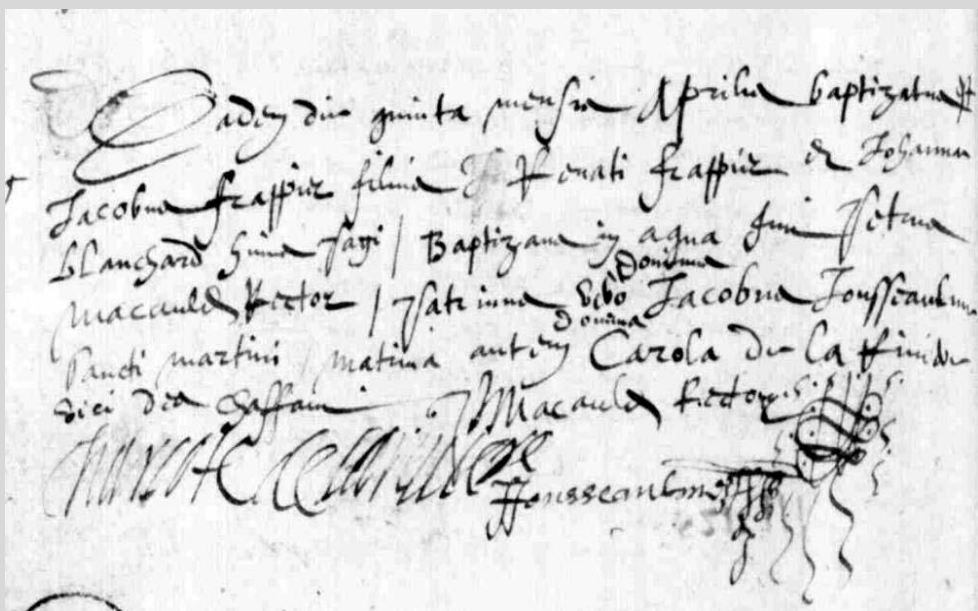 Eadem die quinta mensis Aprilis baptizatus est
Jacobus frappier filius Renati frappier et Johannae
blanchard huius pagi / Baptizans in aqua fuit petrus
Macauld Rector / patrinus vero dominus Jacobus Jousseaulme
Sancti martini / matrina autem domina Carola de la
dict des Chaffau Macauld Rector
Jousseaulme